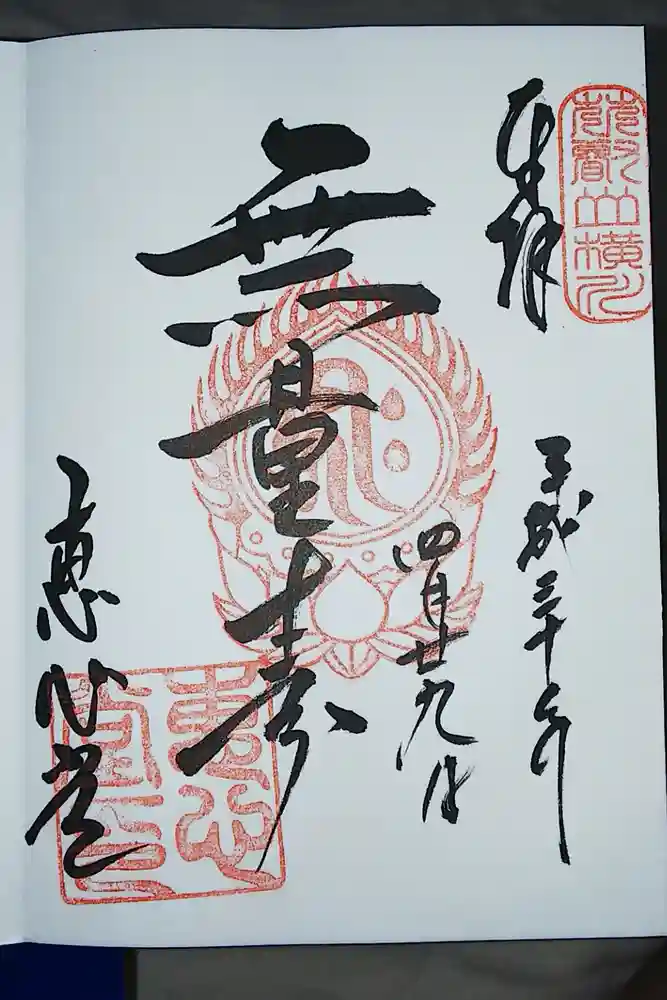 奉拝
叡山横川
平成三十年
四月廿九日
無量寿
恵心堂
恵心堂印